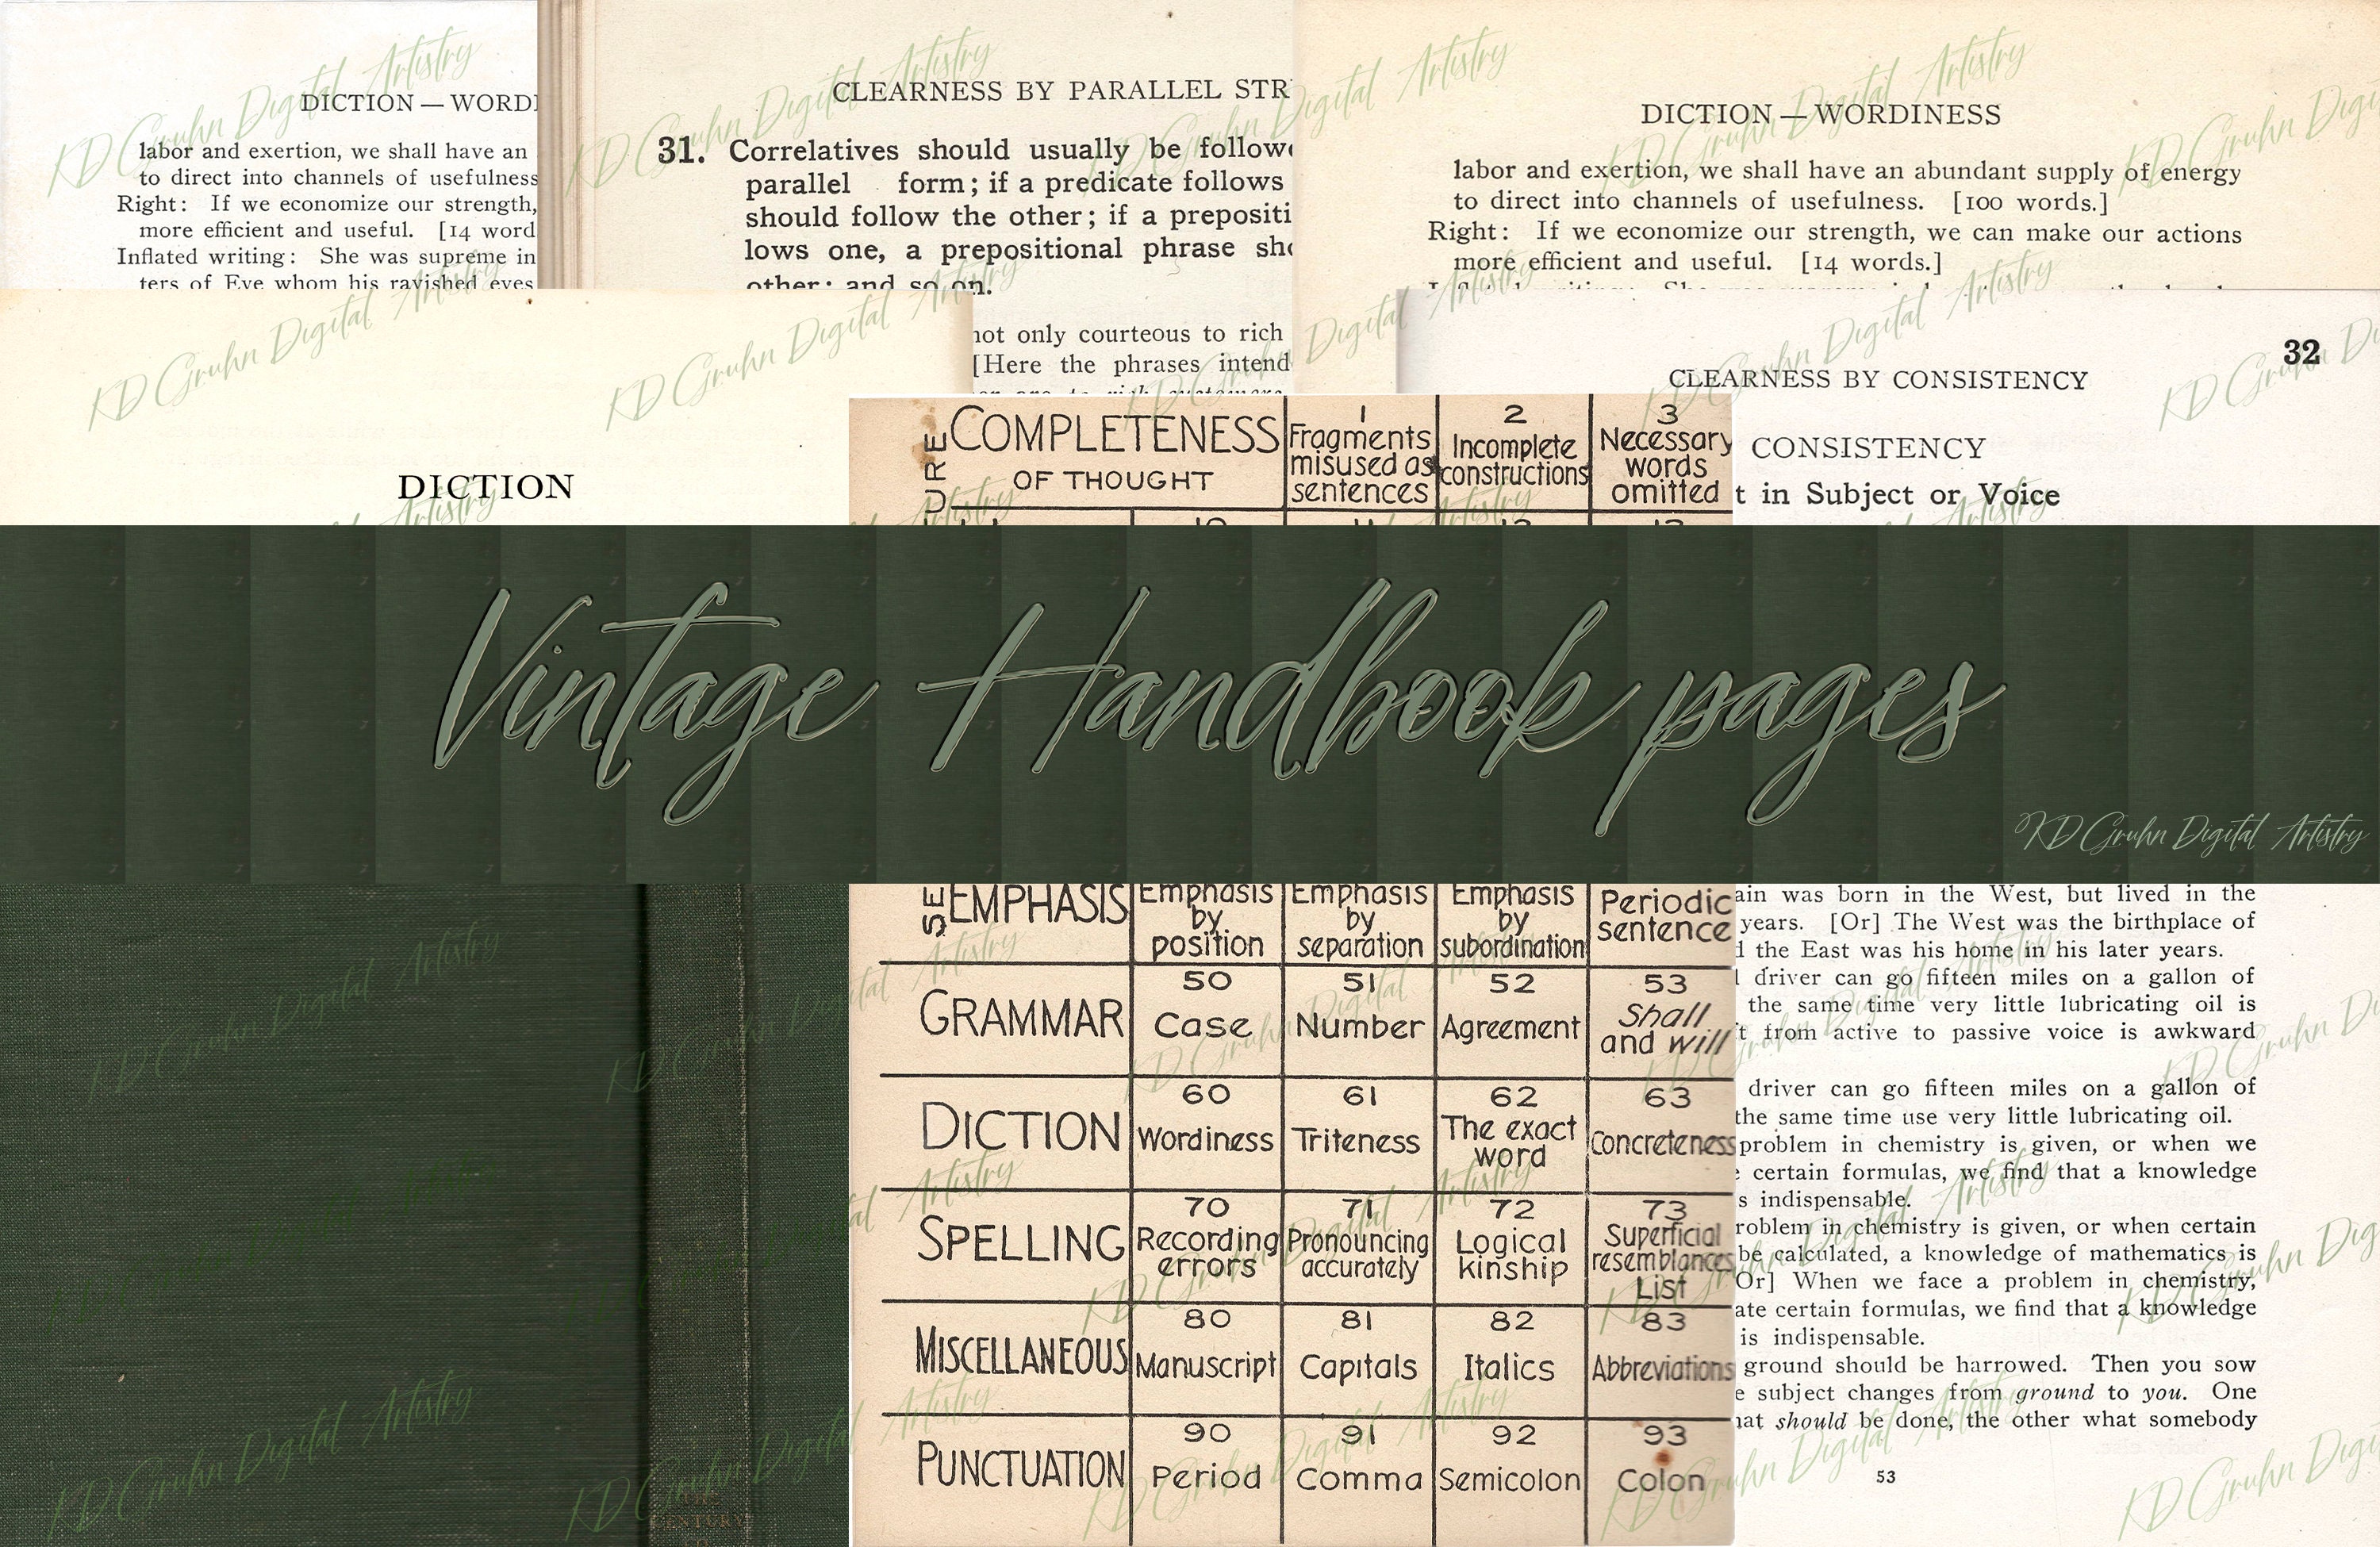 DICTION — WORDI
labor and exertion, we shall have an
to direct into channels of usefulness
Right: If we economize our strength,
more efficient and useful. [14 word
Inflated writing: She was supreme in
ters of Eve whom his ravished eyes
CLEARNESS BY PARALLEL STR
31. Correlatives should usually be follow
parallel form; if a predicate follows
should follow the other; if a prepositi
lows one, a prepositional phrase sho
other; and so on.
not only courteous to rich
[Here the phrases intend
DICTION — WORDINESS
labor and exertion, we shall have an abundant supply of energy
to direct into channels of usefulness. [100 words.]
Right: If we economize our strength, we can make our actions
more efficient and useful. [14 words.]
DICTION
32
CLEARNESS BY CONSISTENCY
CONSISTENCY
t in Subject or Voice
URE
COMPLETENESS
OF THOUGHT
1
Fragments
misused as
sentences
2
Incomplete
constructions
3
Necessary
words
omitted
Vintage Handbook pages
KD Gruhn Digital Artistry
SE
EMPHASIS
Emphasis
by
position
Emphasis
by
separation
Emphasis
by
subordination
Periodic
sentence
GRAMMAR
50
Case
51
Number
52
Agreement
53
Shall
and will
DICTION
60
Wordiness
61
Triteness
62
The exact
word
63
Concreteness
SPELLING
70
Recording
errors
71
Pronouncing
accurately
72
Logical
kinship
73
Superficial
resemblances
List
MISCELLANEOUS
80
Manuscript
81
Capitals
82
Italics
83
Abbreviations
PUNCTUATION
90
Period
91
Comma
92
Semicolon
93
Colon
ain was born in the West, but lived in the
years. [Or] The West was the birthplace of
d the East was his home in his later years.
l driver can go fifteen miles on a gallon of
the same time very little lubricating oil is
t from active to passive voice is awkward
driver can go fifteen miles on a gallon of
the same time use very little lubricating oil.
problem in chemistry is given, or when we
e certain formulas, we find that a knowledge
s indispensable.
roblem in chemistry is given, or when certain
be calculated, a knowledge of mathematics is
Or] When we face a problem in chemistry,
ate certain formulas, we find that a knowledge
is indispensable.
ground should be harrowed. Then you sow
e subject changes from ground to you. One
hat should be done, the other what somebody
53
CENTURY